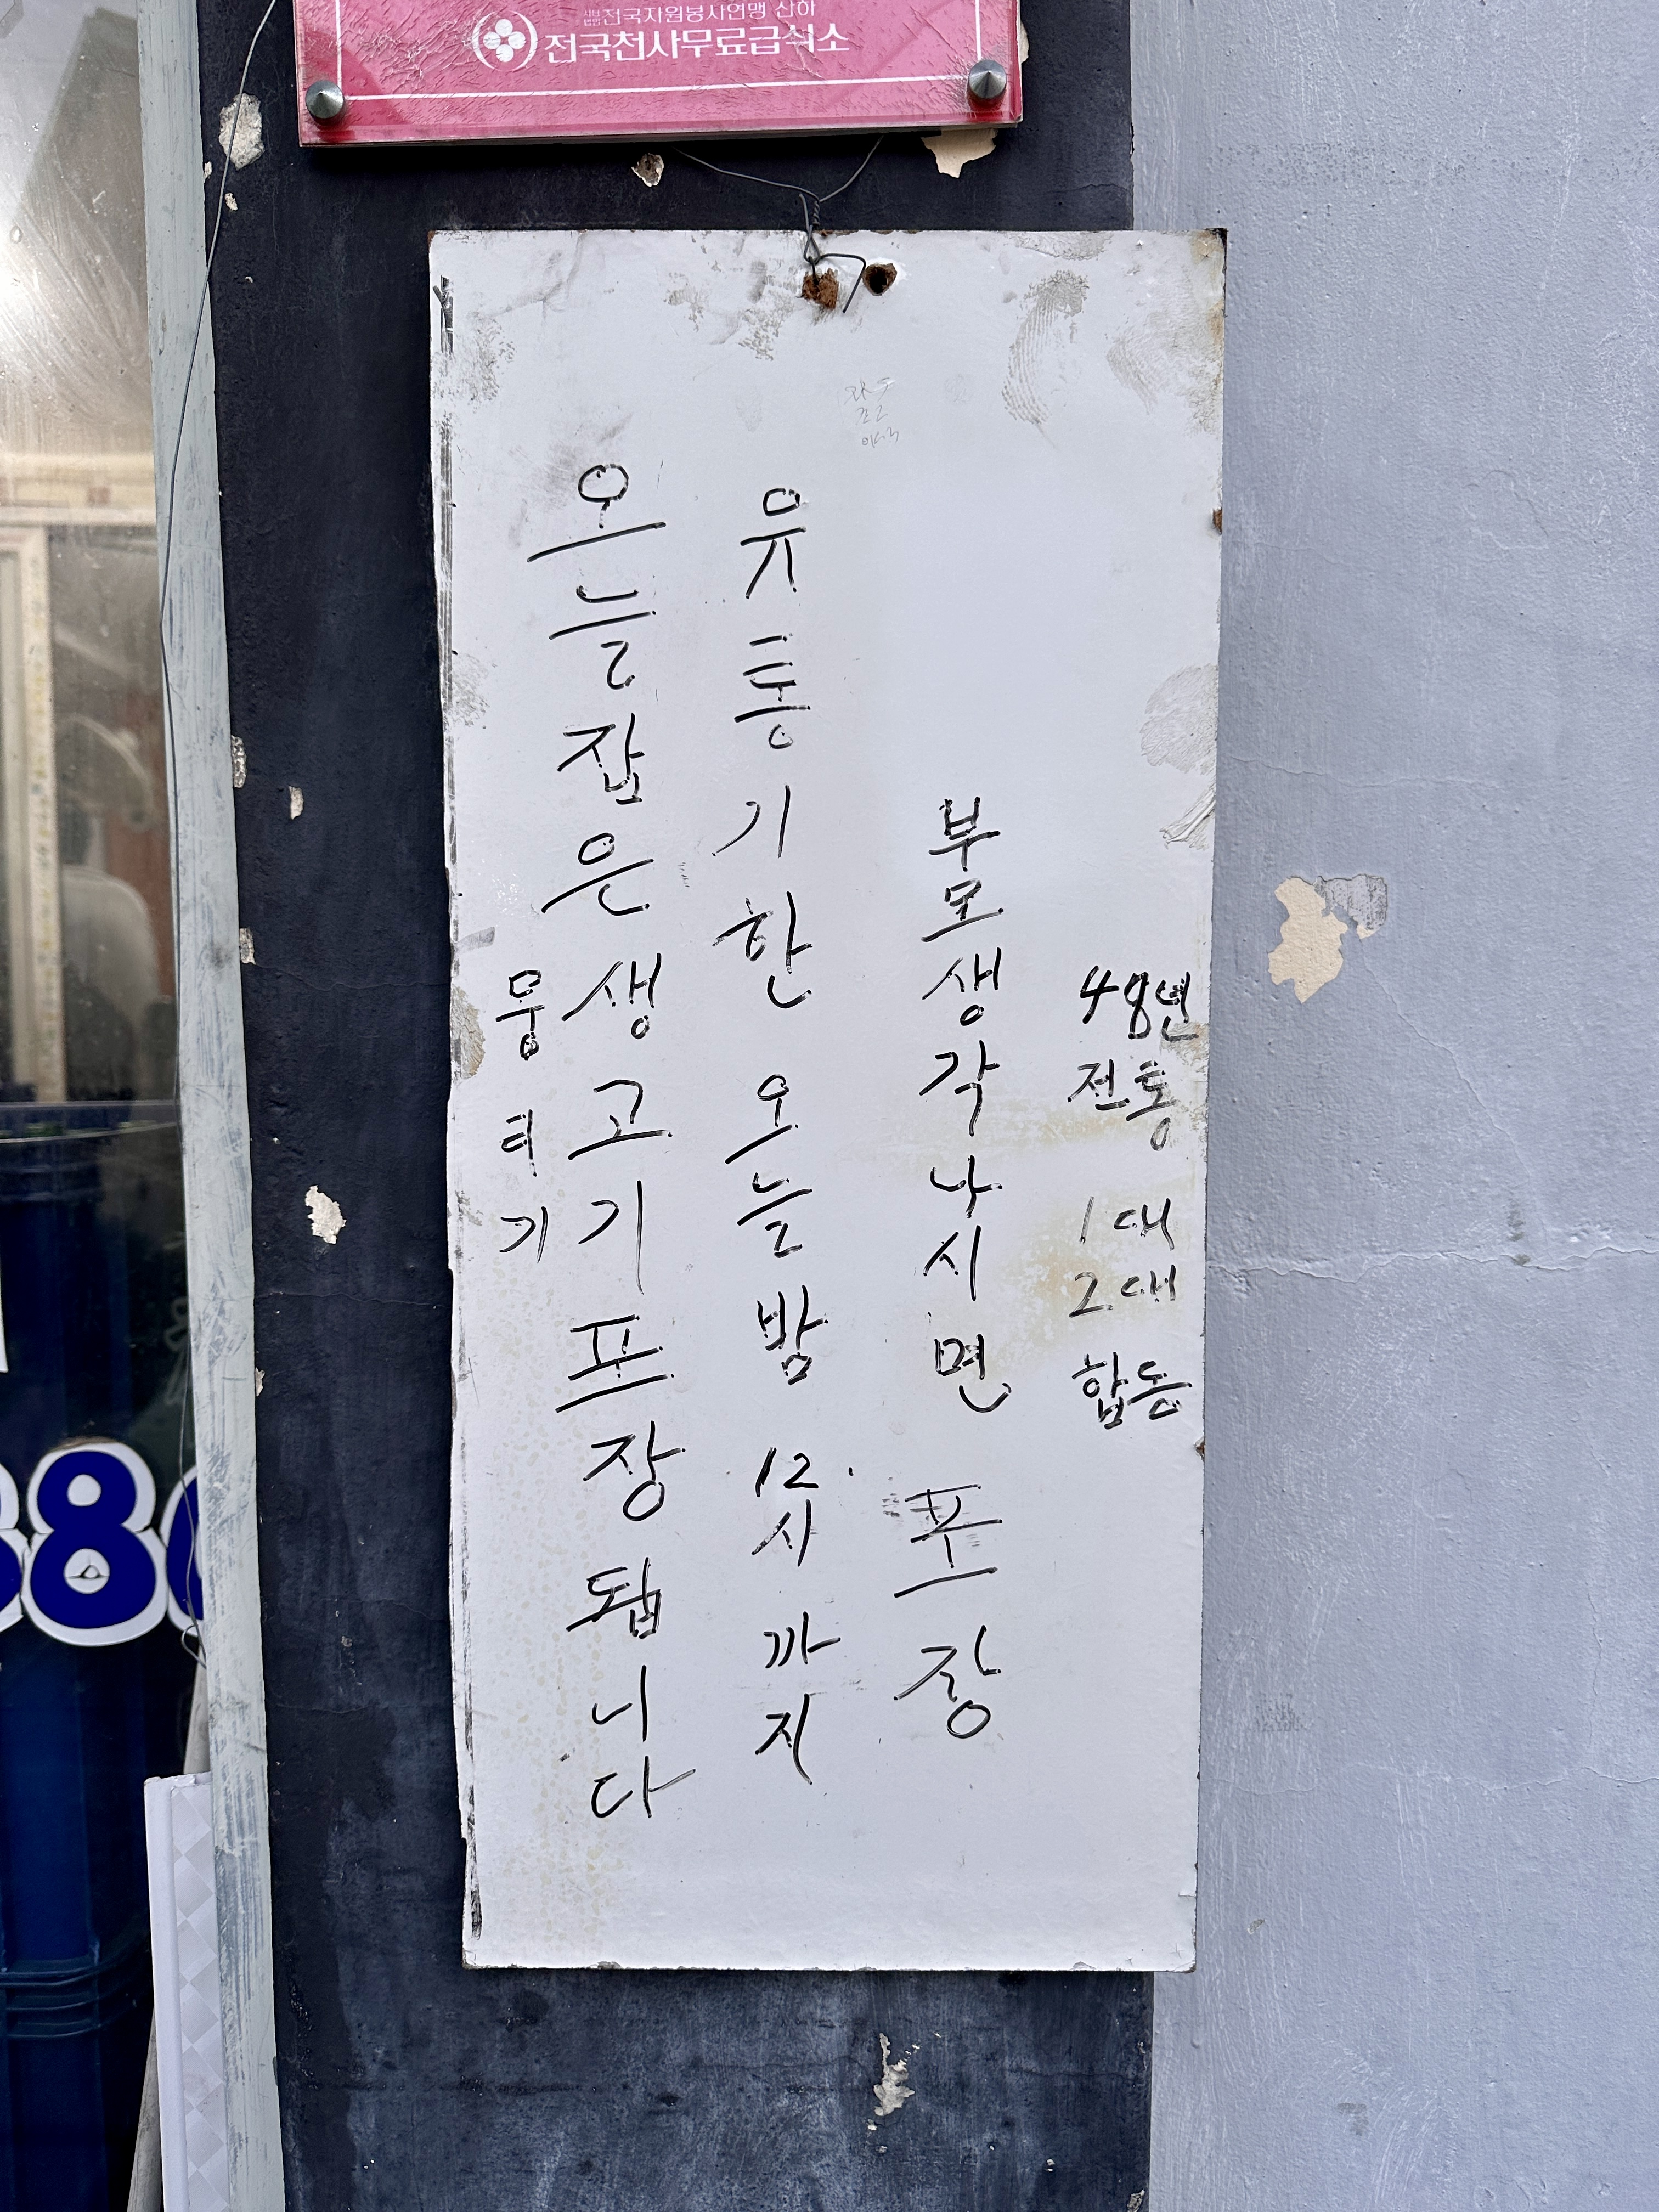 사단법인 전국자원봉사연맹 산하
전국천사무료급식소
뭉티기
오늘잡은생고기포장됩니다
유통기한 오늘밤 12시까지
부모생각나시면 포장
전통
1대
2대
합동